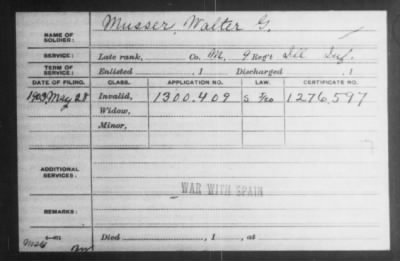 NAME OF SOLDIER: Musser, Walter G.
SERVICE: Late rank, Co. M, 9 Reg't Ill Inf.
TERM OF SERVICE: Enlisted , 1 Discharged , 1
DATE OF FILING. CLASS. APPLICATION NO. LAW. CERTIFICATE NO.
1903, May 28 Invalid, 1300.409 1276,597
Widow,
Minor,
ADDITIONAL SERVICES:
WAR WITH SPAIN
REMARKS:
Died , 1 , at